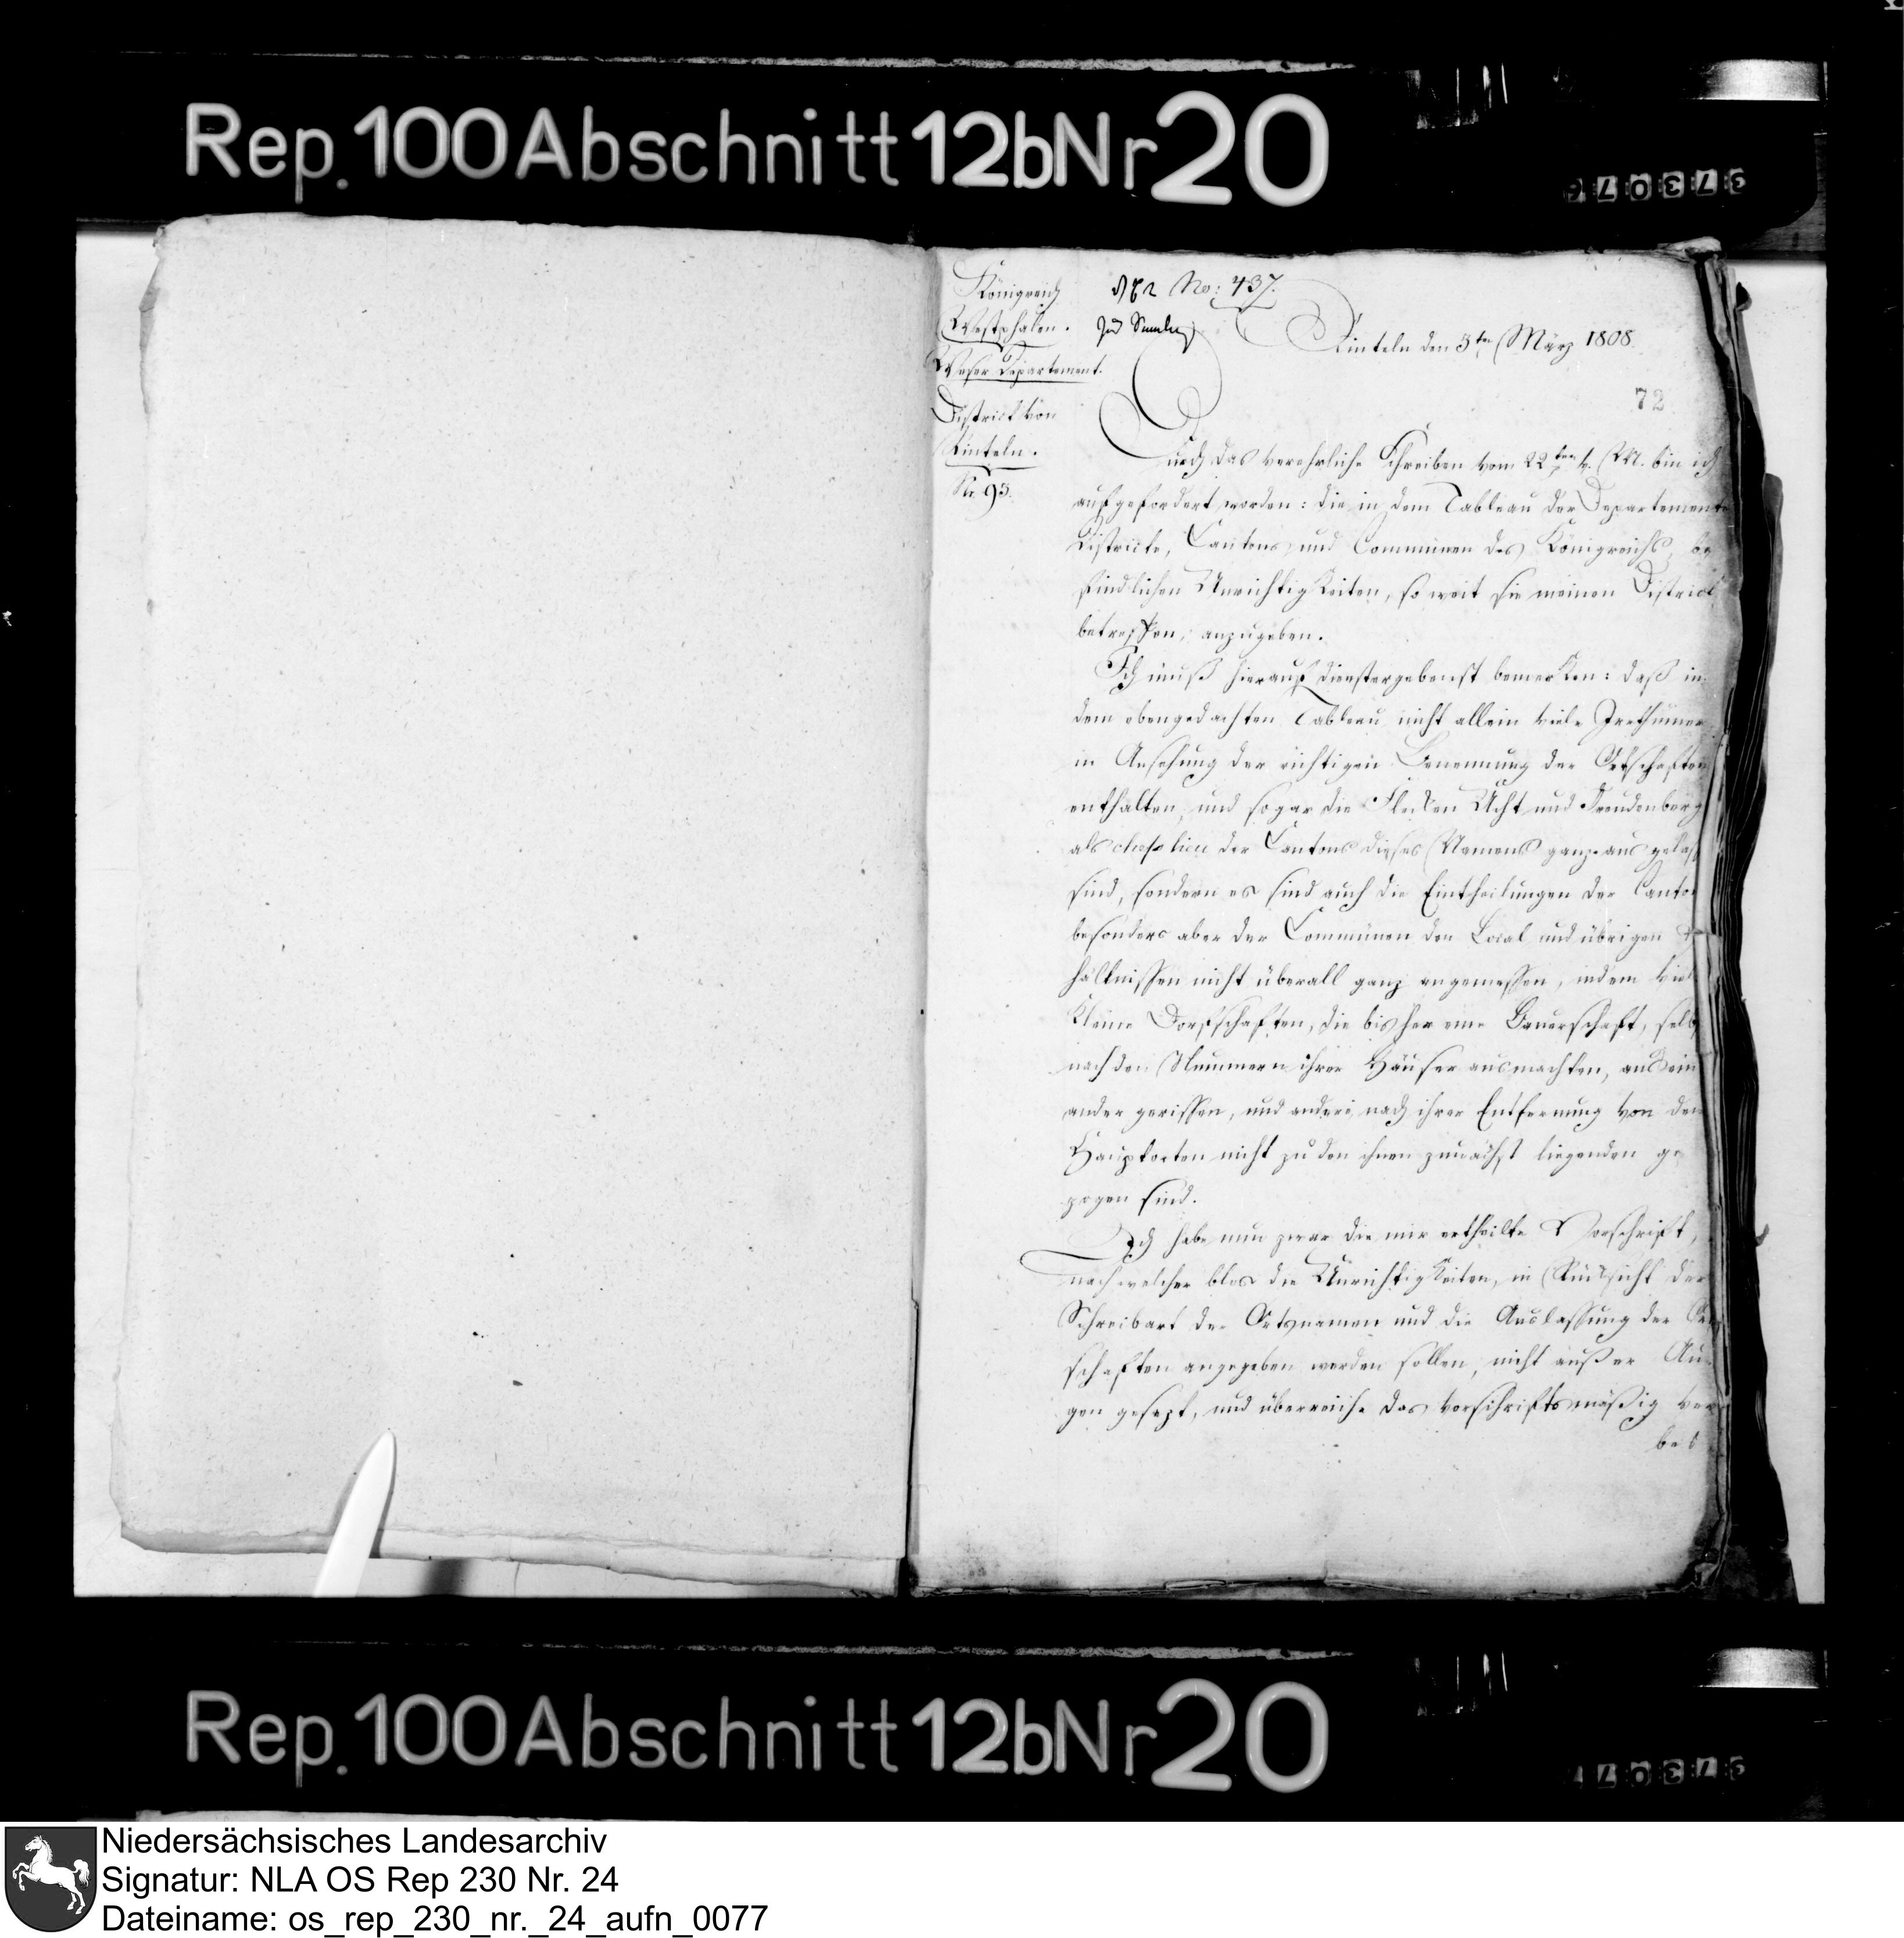 Rep. 100 Abschnitt 12b Nr 20
Königreich
Westphalen.
Weser Departement.
District von
Rinteln.
Nr. 95.
No: 437.
Rinteln den 5ten März 1808.
72
Durch das verehrliche Schreiben vom 22ten v. M. bin ich
aufgefordert worden: die in dem Tableau der Departements
Districte, Cantons und Communen des Königreichs, be
findlichen Unrichtigkeiten, so weit sie meinen District
betreffen, anzugeben.
Ich muß hierauf dienstergebenst bemerken: daß in
dem obengedachten Tableau nicht allein viele Irrthümer
in Ansehung der richtigen Benennung der Ortschaften
enthalten, und sogar die Flecken Ucht und Freudenberg
als chef lieu der Cantons dieses Namens ganz ausgelaß
sind, sondern es sind auch die Eintheilungen der Canto
besonders aber der Communen den Local und übrigen
hältnissen nicht überall ganz angemessen, indem viele
kleine Dorfschaften, die bisher eine Bauerschaft, selbst
nach den Nummern ihrer Häuser ausmachten, aus ein
ander gerissen, und andere nach ihrer Entfernung von den
Hauptorten nicht zu den ihnen zunächst liegenden ge
zogen sind.
Ich habe nun zwar die mir ertheilte Vorschrift,
nach welcher blos die Unrichtigkeiten, in Rücksicht der
Schreibart der Ortsnamen und die Auslassung der Ort
schaften angegeben werden sollen, nicht außer Au
gen gesezt, und überreiche das vorschriftsmäßig ver
beß
Rep. 100 Abschnitt 12b Nr 20
Niedersächsisches Landesarchiv
Signatur: NLA OS Rep 230 Nr. 24
Dateiname: os_rep_230_nr._24_aufn_0077